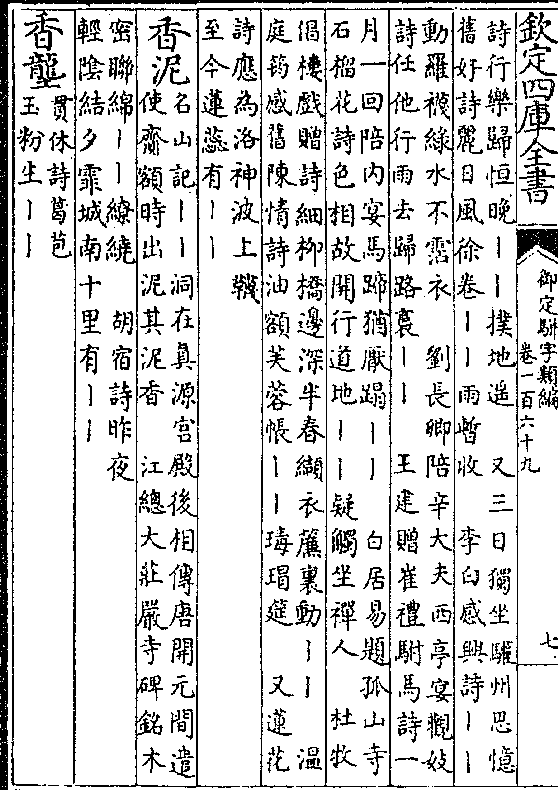 欽定四庫全書
御定駢字類編
卷一百六十九
七
詩行樂歸恒晚丨丨撲地遙　又三日獨坐驩州思憶
舊好詩麗日風徐卷丨丨雨暫收　李白感興詩丨丨
動羅襪緑水不霑衣　劉長卿陪辛大夫西亭宴觀妓
詩任他行雨去歸路裛丨丨　王建贈崔禮駙馬詩一
月一回陪内宴馬蹄猶厭蹋丨丨　白居易題孤山寺
石榴花詩色相故開行道地丨丨疑觸坐禪人　杜牧
倡樓戲贈詩細柳橋邊深半春纈衣簾裏動丨丨　温
庭筠感舊陳情詩油額芙蓉帳丨丨瑇瑁筵　又蓮花
詩應為洛神波上韈
至今蓮蕊有丨丨
香泥
名山記丨丨洞在真源宫殿後相傳唐開元間遣
使齋額時出泥其泥香　江總大莊嚴寺碑銘木
密聯綿丨丨繚繞　胡宿詩昨夜
輕陰結夕霏城南十里有丨丨
香壟
貫休詩葛苞
玉粉生丨丨